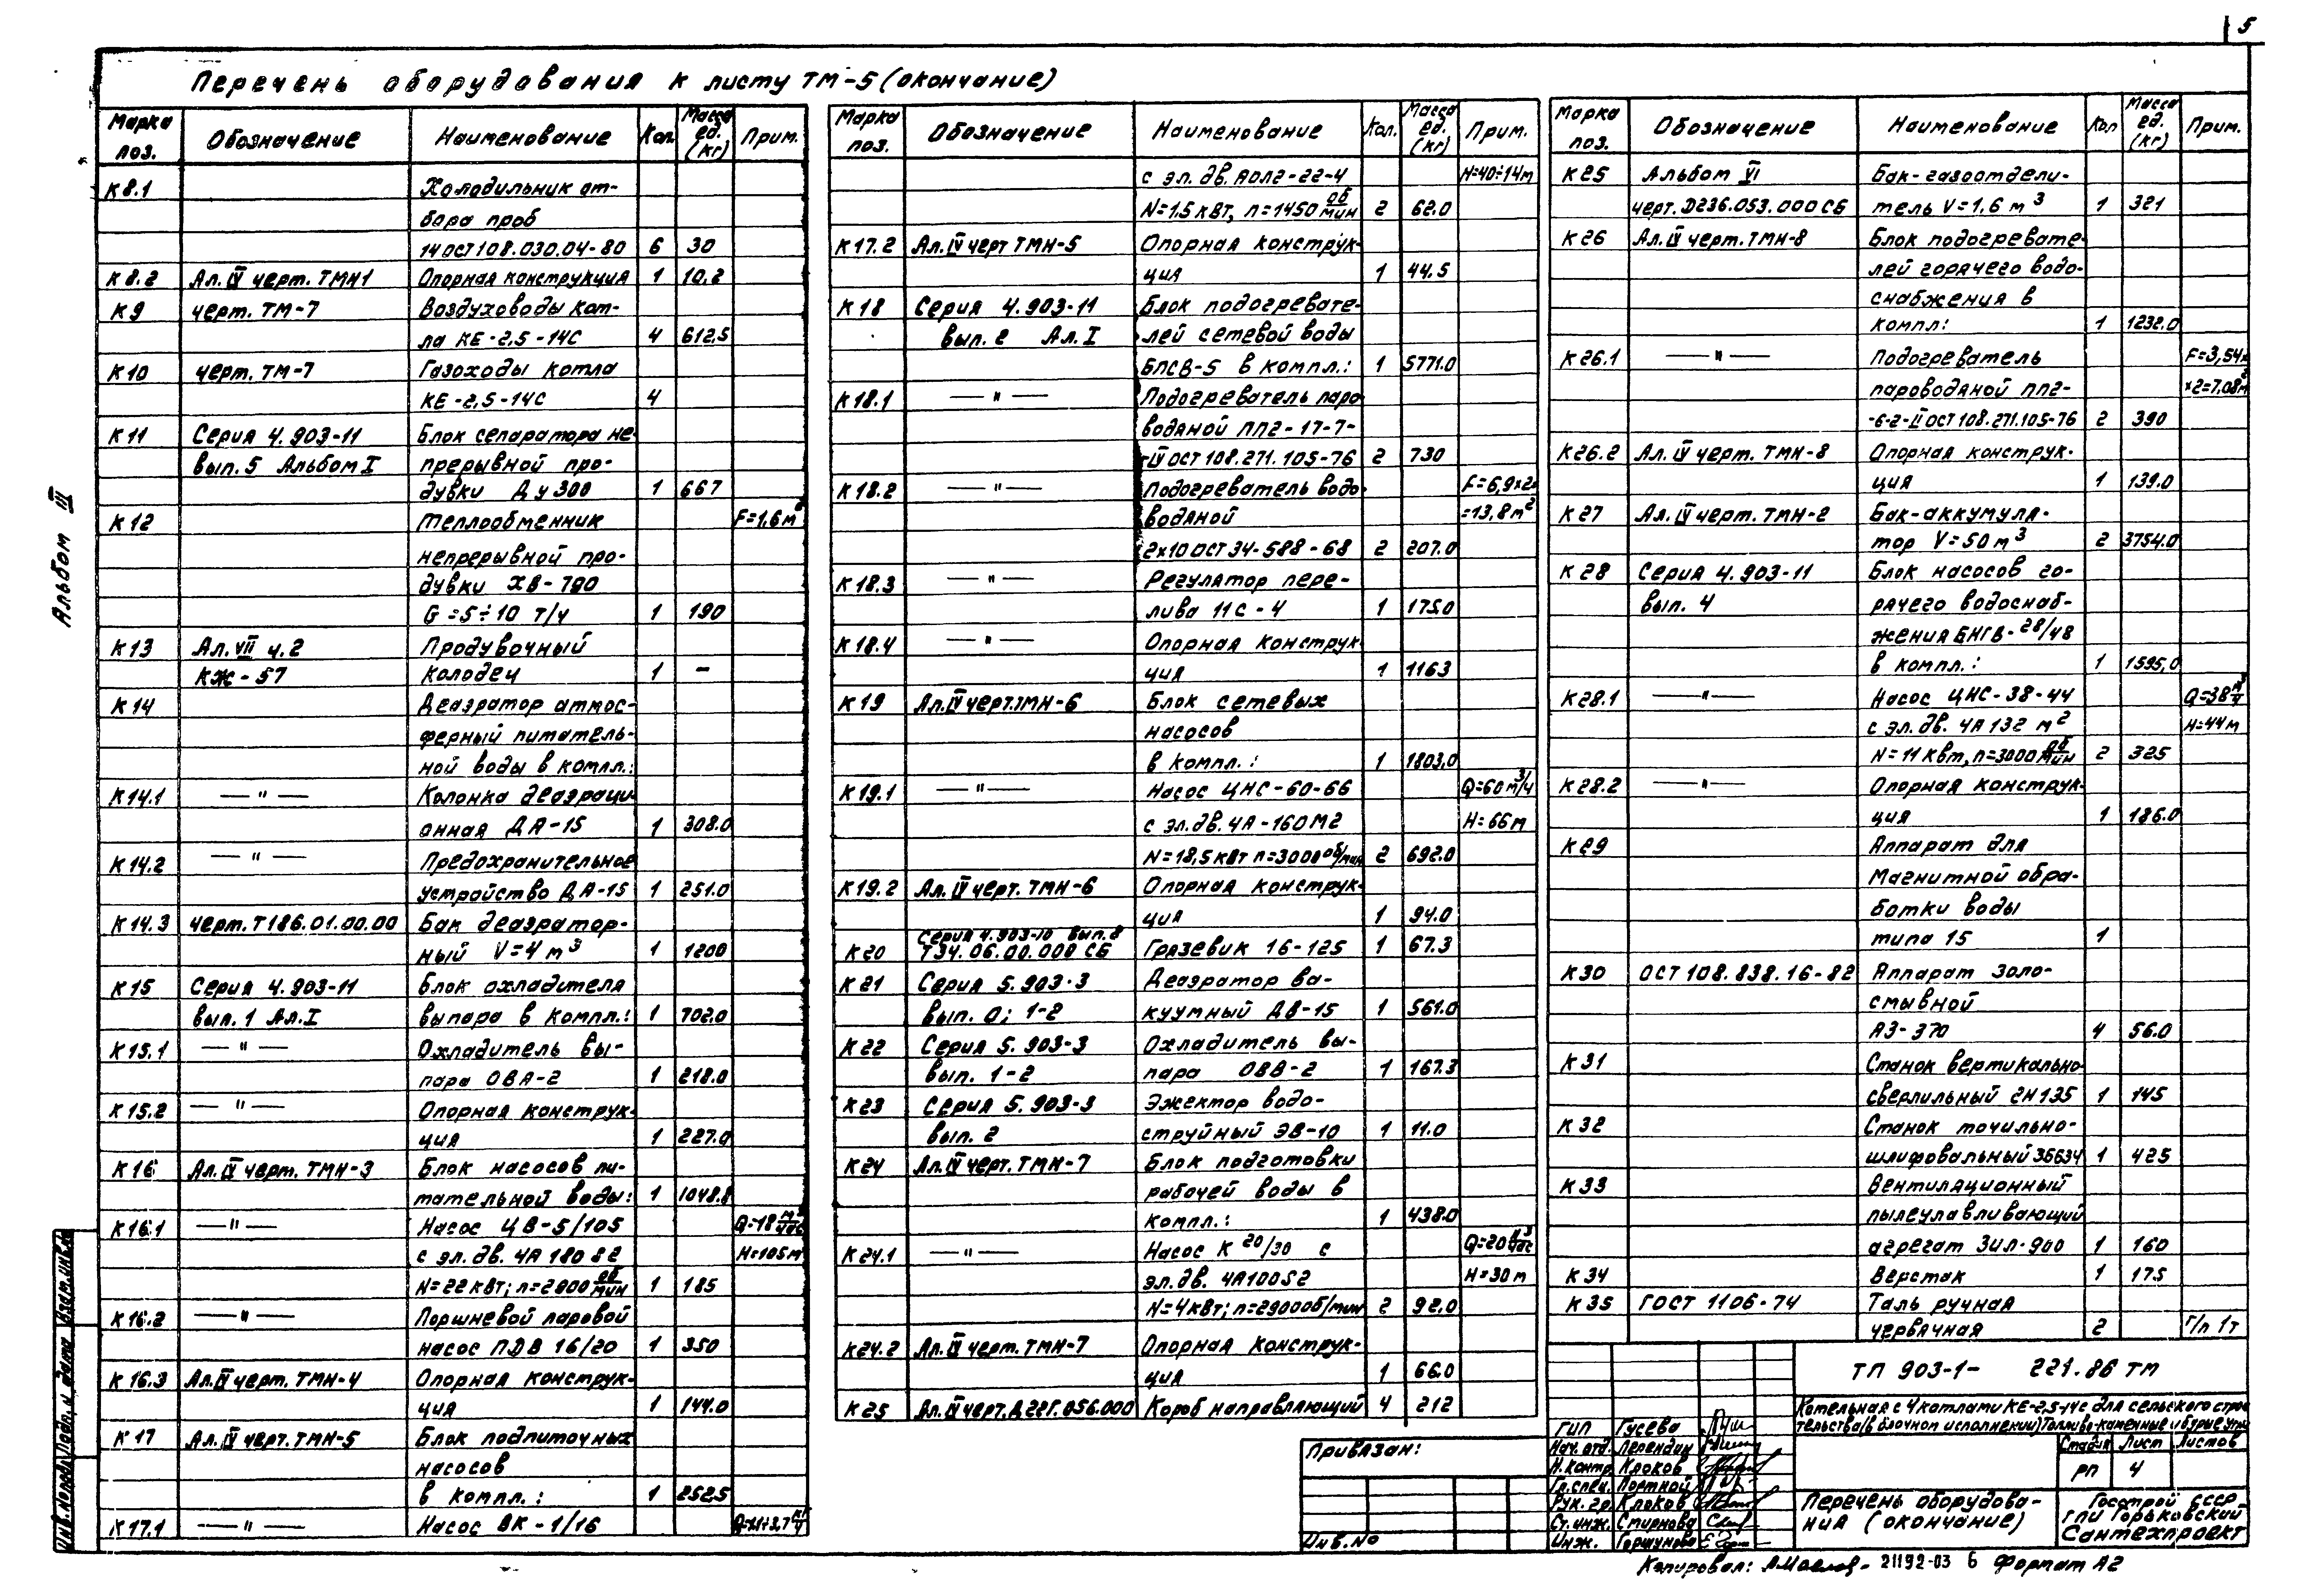 5
Перечень оборудования к листу ТМ-5 (окончание)
Альбом III
Марка поз. Обозначение Наименование Кол. Масса ед. (кг) Прим.
К8.1 Холодильник от-
бора проб
14 ОСТ 108.030.04-80 6 30
К8.2 Ал. IV черт. ТМН1 Опорная конструкция 1 10.2
К9 черт. ТМ-7 Воздуховоды кот-
ла КЕ-2,5-14С 4 612,5
К10 черт. ТМ-7 Газоходы котла
КЕ-2,5-14С 4
К11 Серия 4.903-11 Блок сепаратора не-
вып. 5 Альбом I прерывной про-
дувки Ду 300 1 667
К12 Теплообменник F=1,6м²
непрерывной про-
дувки ХВ-790
G=5÷10 т/ч 1 190
К13 Ал. VII ч.2 Продувочный
КЖ-57 колодец 1 —
К14 Деаэратор атмос-
ферный питатель-
ной воды в компл.:
К14.1 — " — Колонка деаэраци-
онная ДА-15 1 308.0
К14.2 — " — Предохранительное
устройство ДА-15 1 251.0
К14.3 черт. Т186.01.00.00 Бак деаэратор-
ный V=4 м³ 1 1200
К15 Серия 4.903-11 Блок охладителя
вып. 1 Ал. I выпара в компл.: 1 702.0
К15.1 — " — Охладитель вы-
пара ОВА-2 1 218.0
К15.2 — " — Опорная конструк-
ция 1 227.0
К16 Ал. IV черт. ТМН-3 Блок насосов пи-
тательной воды: 1 1048.8
К16.1 — " — Насос ЦВ-5/105 Q=18 м³/час
с эл. дв. 4А 180 S2 Н=105м
N=22 кВт; n=2900 об/мин 1 185
К16.2 — " — Поршневой паровой
насос ПДВ 16/20 1 350
К16.3 Ал. IV черт. ТМН-4 Опорная конструк-
ция 1 144.0
К17 Ал. IV черт. ТМН-5 Блок подпиточных
насосов
в компл.: 1 252,5
К17.1 — " — Насос ВК-1/16 Q=1,1÷3,7 м³/ч
Марка поз. Обозначение Наименование Кол. Масса ед. (кг) Прим.
с эл. дв. АОЛ2-22-4 Н=40÷14м
N=1,5 кВт, n=1450 об/мин 2 62.0
К17.2 Ал. IV черт ТМН-5 Опорная конструк-
ция 1 44.5
К18 Серия 4.903-11 Блок подогревате-
вып. 2 Ал. I лей сетевой воды
БПСВ-5 в компл.: 1 5771.0
К18.1 — " — Подогреватель паро
водяной ПП2-17-7-
-IV ОСТ 108.271.105-76 2 730
К18.2 — " — Подогреватель водо- F=6,9×2=
водяной =13,8м²
2×10 ОСТ 34-588-68 2 207.0
К18.3 — " — Регулятор пере-
лива 11С-4 1 175.0
К18.4 — " — Опорная конструк-
ция 1 1163
К19 Ал. IV черт. ТМН-6 Блок сетевых
насосов
в компл.: 1 1803.0
К19.1 — " — Насос ЦНС-60-66 Q=60 м³/ч
с эл. дв. 4А-160М2 Н=66м
N=18,5 кВт n=3000 об/мин 2 692.0
К19.2 Ал. IV черт. ТМН-6 Опорная конструк-
ция 1 94.0
Серия 4.903-10 вып. 8
К20 Т34.06.00.000 СБ Грязевик 16-125 1 67.3
К21 Серия 5.903-3 Деаэратор ва-
вып. 0; 1-2 куумный ДВ-15 1 561.0
К22 Серия 5.903-3 Охладитель вы-
вып. 1-2 пара ОВВ-2 1 167.3
К23 Серия 5.903-3 Эжектор водо-
вып. 2 струйный ЭВ-10 1 11.0
К24 Ал. IV черт. ТМН-7 Блок подготовки
рабочей воды в
компл.: 1 438.0
К24.1 — " — Насос К 20/30 с Q=20 м³/час
эл. дв. 4А100S2 Н=30м
N=4кВт; n=2900об/мин 2 92.0
К24.2 Ал. IV черт. ТМН-7 Опорная конструк-
ция 1 66.0
К25 Ал. IV черт. Д22Г.056.000 Короб направляющий 4 212
Марка поз. Обозначение Наименование Кол Масса ед. (кг) Прим.
К25 Альбом VI Бак-газоотдели-
черт. D236.053.000 СБ тель V=1,6 м³ 1 321
К26 Ал. IV черт. ТМН-8 Блок подогревате-
лей горячего водо-
снабжения в
компл: 1 1232.0
К26.1 — " — Подогреватель F=3,54×
пароводяной ПП2- ×2=7.08м²
-6-2-II ОСТ 108.271.105-76 2 390
К26.2 Ал. IV черт. ТМН-8 Опорная конструк-
ция 1 139.0
К27 Ал. IV черт. ТМН-2 Бак-аккумуля-
тор V=50 м³ 2 3754.0
К28 Серия 4.903-11 Блок насосов го-
вып. 4 рячего водоснаб-
жения БНГВ-28/48
в компл.: 1 1595,0
К28.1 — " — Насос ЦНС-38-44 Q=38 м³/ч
с эл. дв. 4А 132 м² Н=44м
N=11 кВт, n=3000 об/мин 2 325
К28.2 — " — Опорная конструк-
ция 1 186.0
К29 Аппарат для
магнитной обра-
ботки воды
типа 15 1
К30 ОСТ 108.838.16-82 Аппарат золо-
смывной
АЗ-370 4 56.0
К31 Станок вертикально-
сверлильный 2Н135 1 145
К32 Станок точильно-
шлифовальный 3Б634 1 425
К33 Вентиляционный
пылеулавливающий
агрегат ЗИЛ-900 1 160
К34 Верстак 1 175
К35 ГОСТ 1106-74 Таль ручная
червячная 2 г/п 1т
ТП 903-1- 221.86 ТМ
Котельная с 4 котлами КЕ-2,5-14С для сельского строи-
тельства (в блочном исполнении) Топливо-каменные и бурые угли
Стадия Лист Листов
РП 4
Перечень оборудова-
ния (окончание)
Госстрой СССР
ГПИ Горьковский
Сантехпроект
ГИП Гусева
Нач. отд. Легендин
Н. контр. Клоков
Гл. спец. Портной
Рук. гр. Клоков
Ст. инж. Смирнова
Инж. Горшунова
Привязан:
Инв. №
Инв. № подл. Подп. и дата Взам. инв. №
Копировал: 21192-03 6 Формат А2